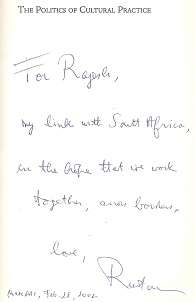 THE POLITICS OF CULTURAL PRACTICE
For Rajesh,
my link with South Africa,
in the hope that we work
together, across borders,
love,
Rustom
Mumbai, Feb. 28, 2002